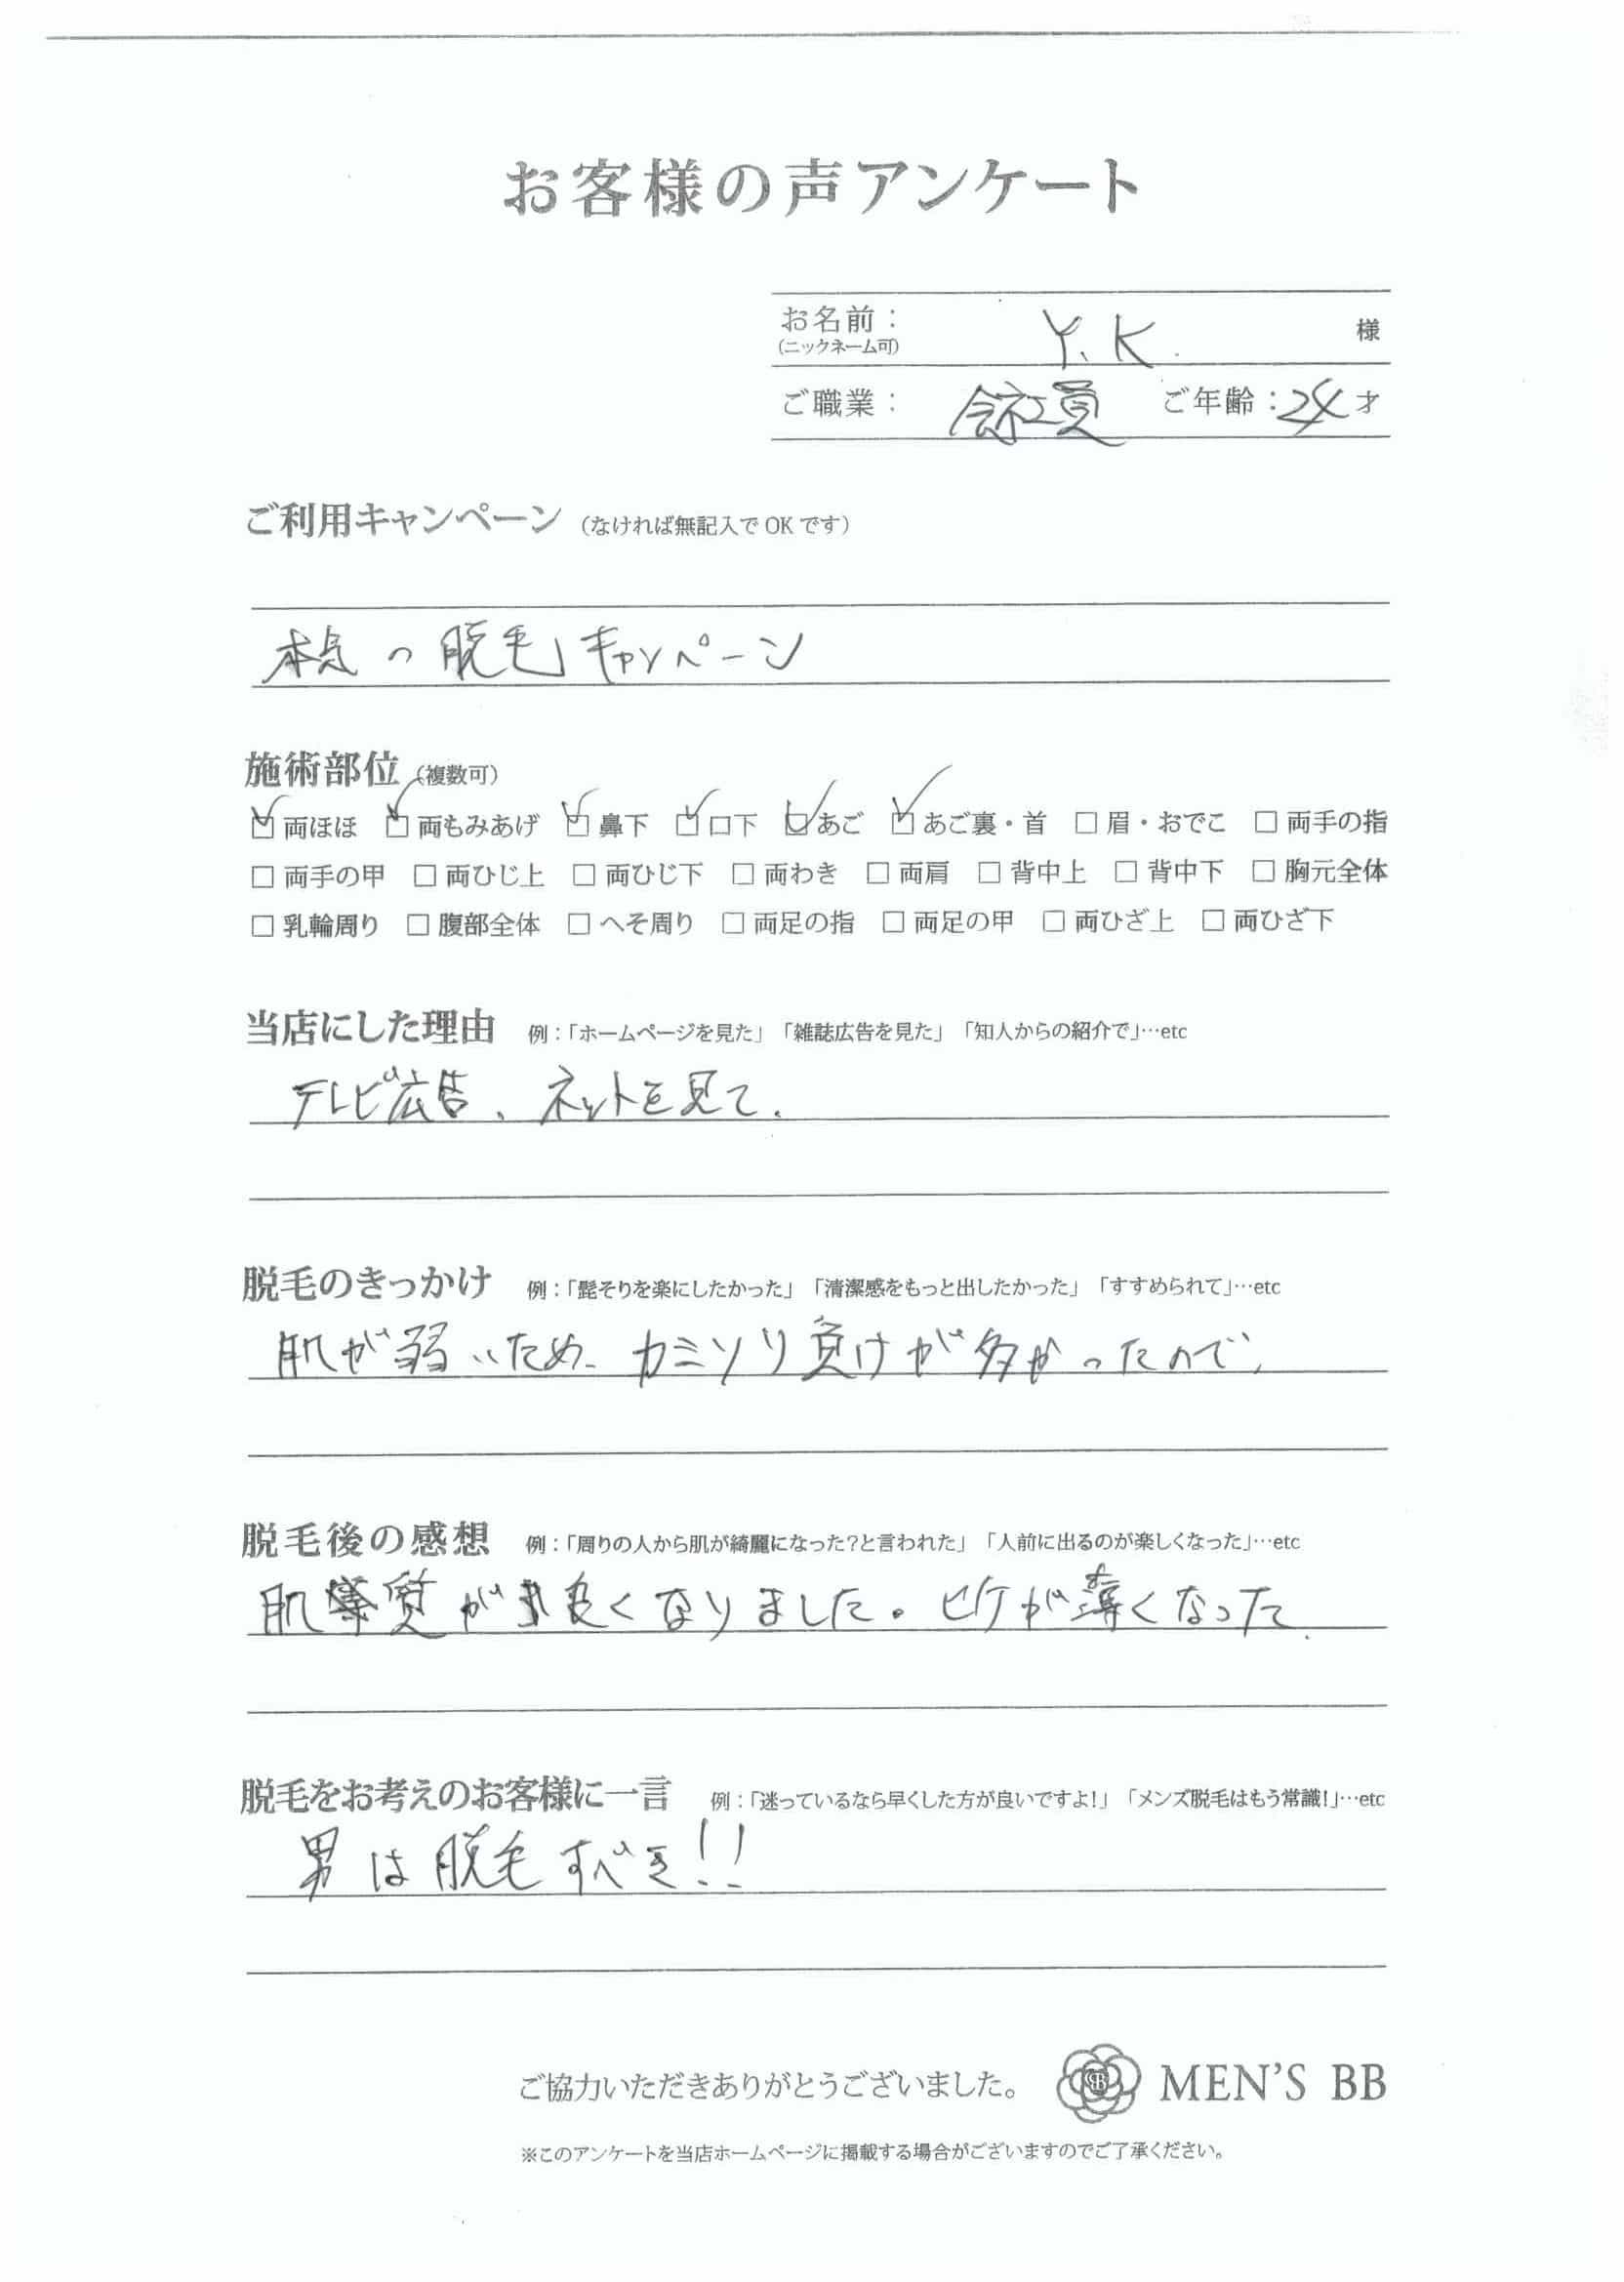 お客様の声アンケート
お名前： Y.K. 様
(ニックネーム可)
ご職業： 会社員 ご年齢：24才
ご利用キャンペーン（なければ無記入でOKです）
本気の脱毛キャンペーン
施術部位（複数可）
☑両ほほ ☑両もみあげ ☑鼻下 ☑口下 ☑あご ☑あご裏・首 □眉・おでこ □両手の指
□両手の甲 □両ひじ上 □両ひじ下 □両わき □両肩 □背中上 □背中下 □胸元全体
□乳輪周り □腹部全体 □へそ周り □両足の指 □両足の甲 □両ひざ上 □両ひざ下
当店にした理由 例：「ホームページを見た」「雑誌広告を見た」「知人からの紹介で」…etc
テレビ広告、ネットを見て.
脱毛のきっかけ 例：「髭そりを楽にしたかった」「清潔感をもっと出したかった」「すすめられて」…etc
肌が弱いため、カミソリ負けが多かったので、
脱毛後の感想 例：「周りの人から肌が綺麗になった？と言われた」「人前に出るのが楽しくなった」…etc
肌質が良くなりました。ヒゲが薄くなった.
脱毛をお考えのお客様に一言 例：「迷っているなら早くした方が良いですよ！」「メンズ脱毛はもう常識！」…etc
男は脱毛すべき!!
ご協力いただきありがとうございました。 MEN'S BB
※このアンケートを当店ホームページに掲載する場合がございますのでご了承ください。